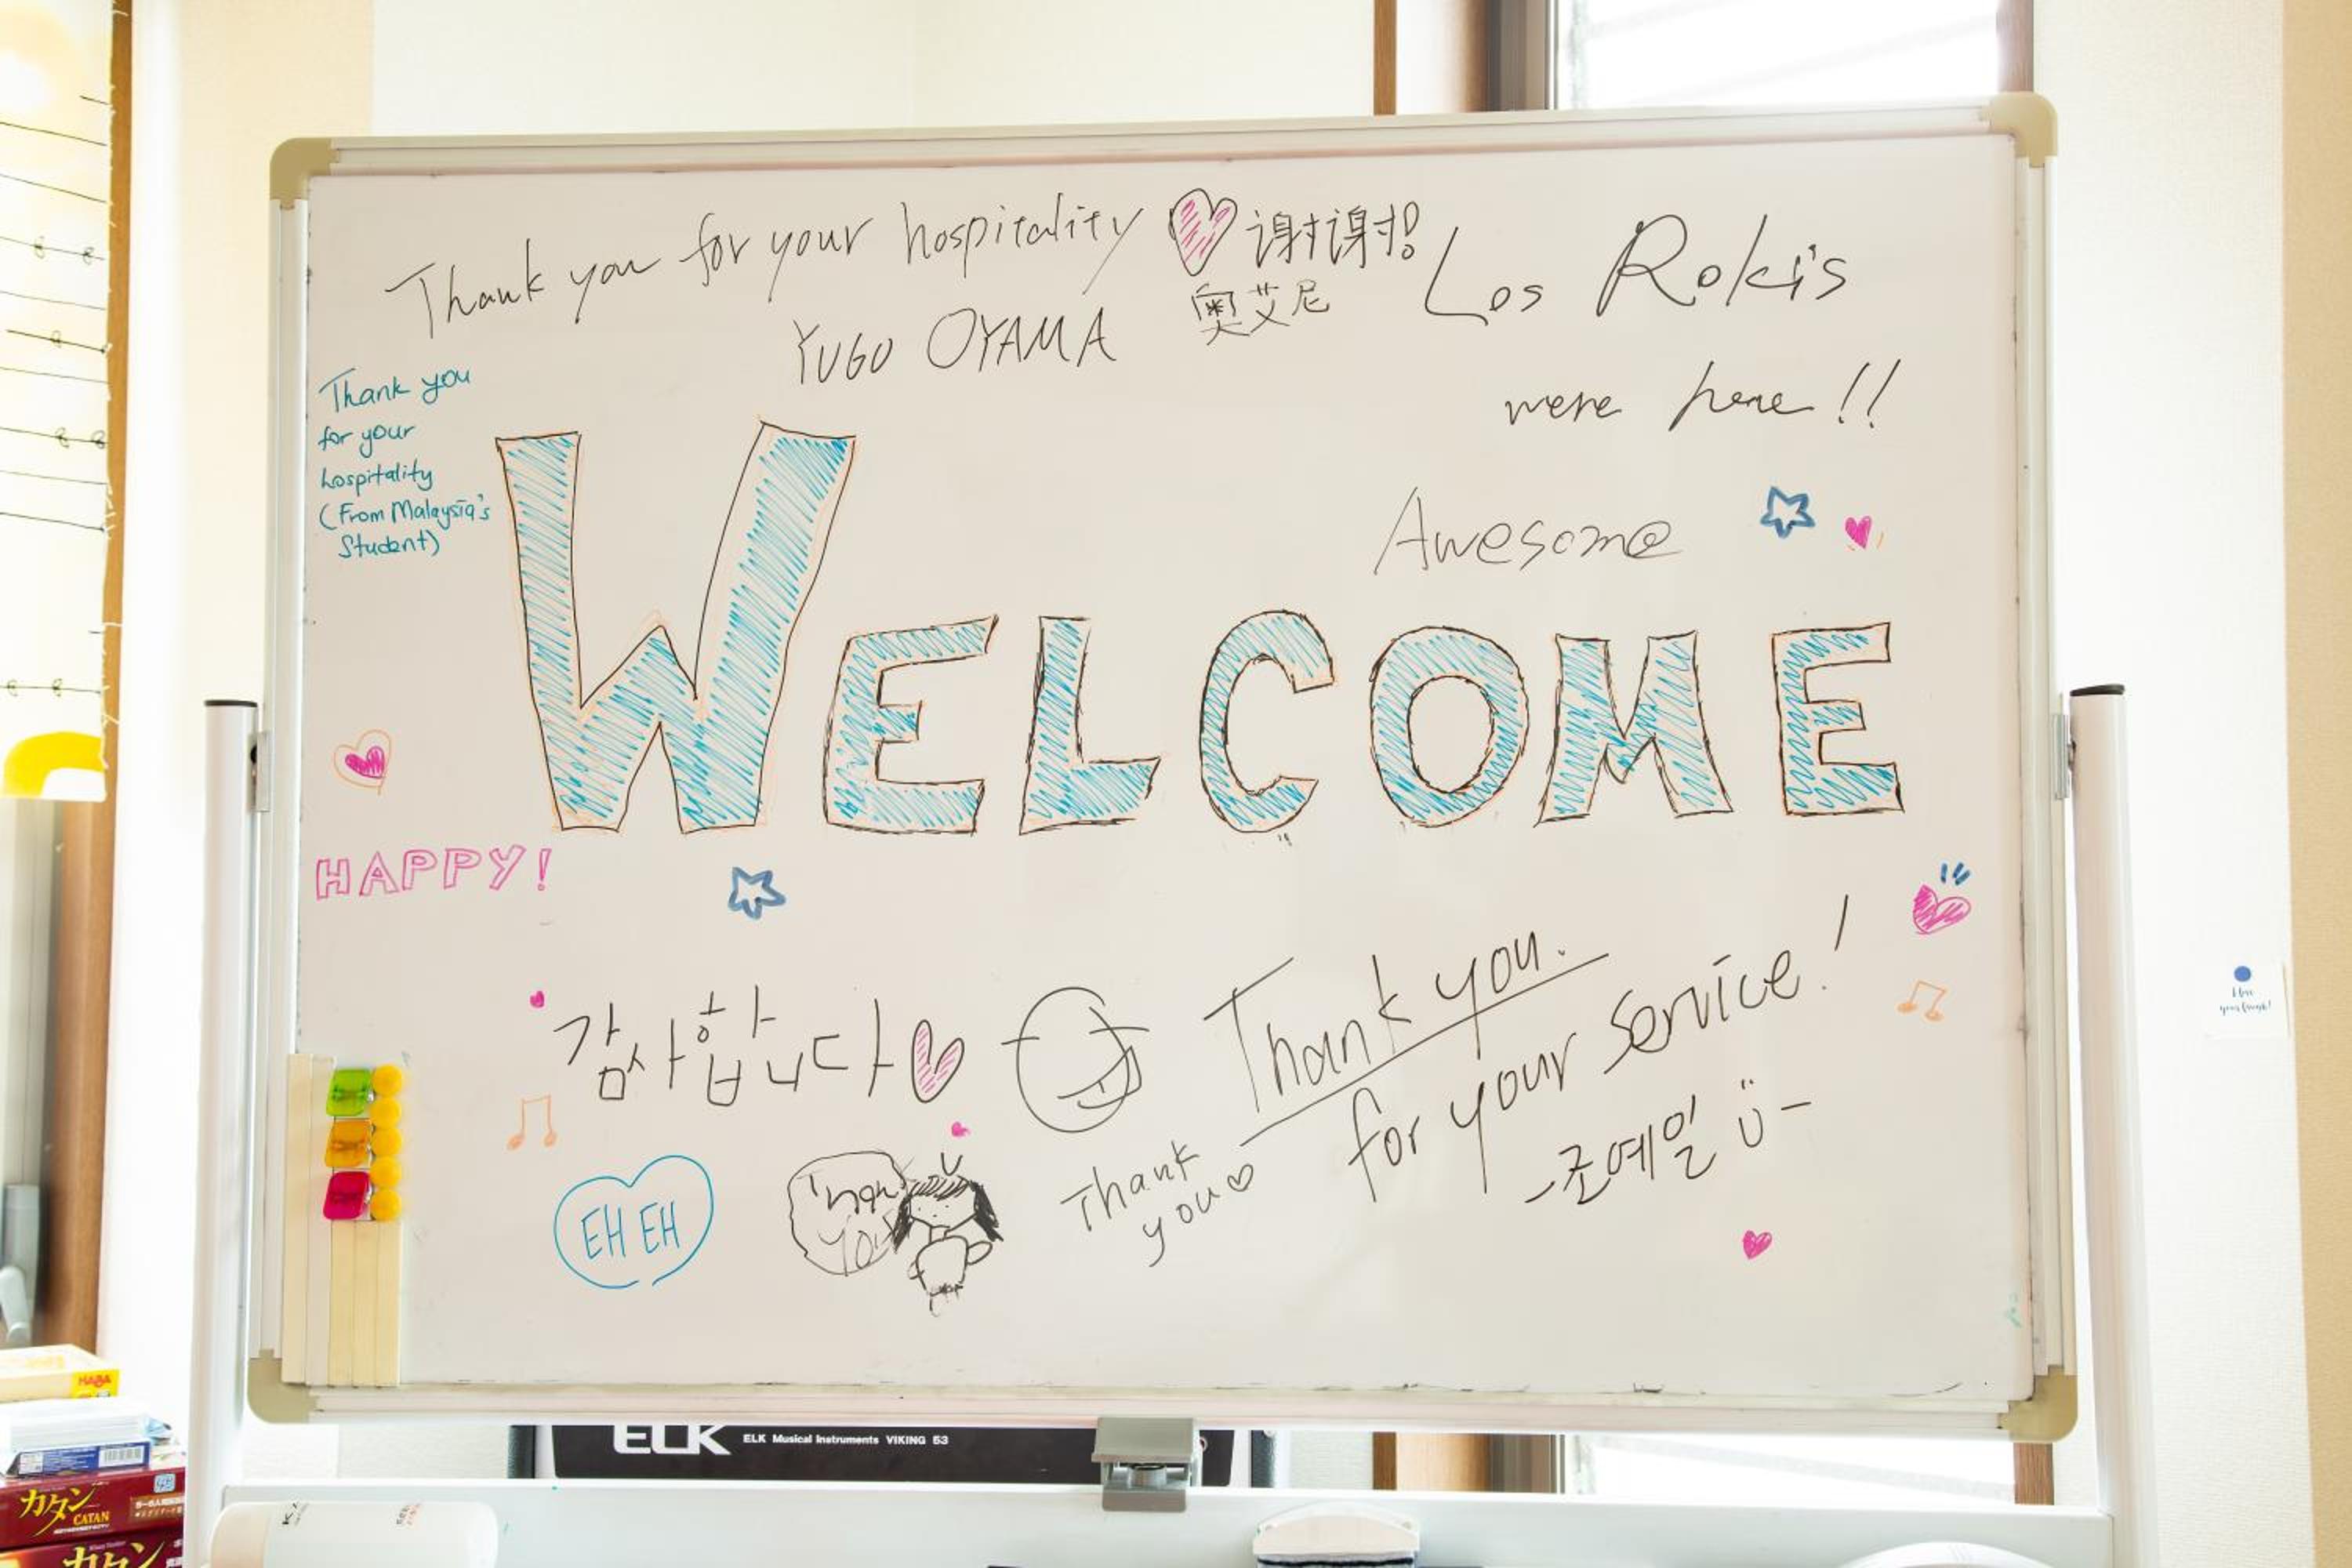 Thank you for your hospitality
谢谢!
奥艾尼
YUGO OYAMA
Los Roki's
were here!!
Thank you
for your
hospitality
(From Malaysia's
Student)
Awesome
WELCOME
HAPPY!
감사합니다
Thank you.
for your service!
-조예일
Thank
you
EH EH
ELK
ELK Musical Instruments VIKING 53
HABA
カタン
CATAN
カタン